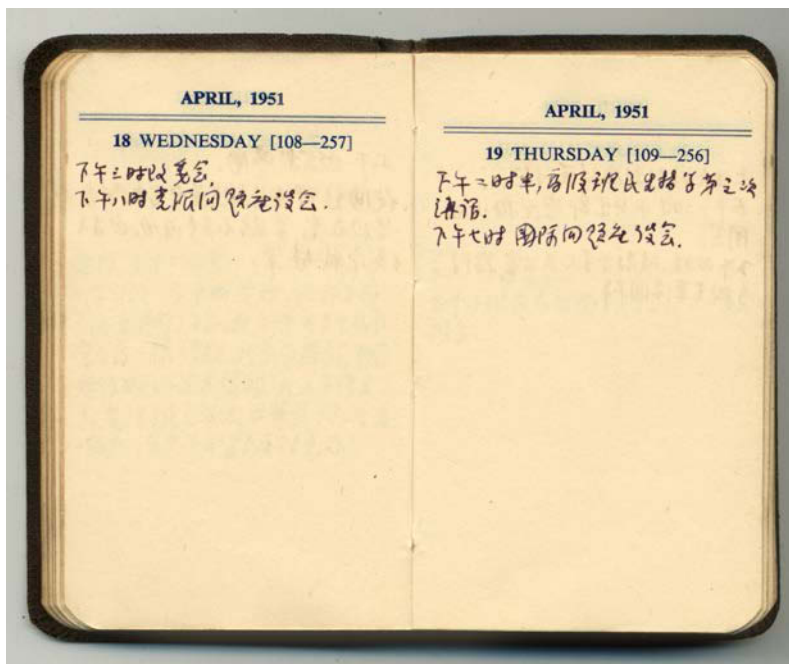 APRIL, 1951
18 WEDNESDAY [108—257]
下午三时政委会,
下午八时党派问题座谈会.
APRIL, 1951
19 THURSDAY [109—256]
下午二时半,高级班民先哲学第三次
讲话.
下午七时国际问题座谈会.